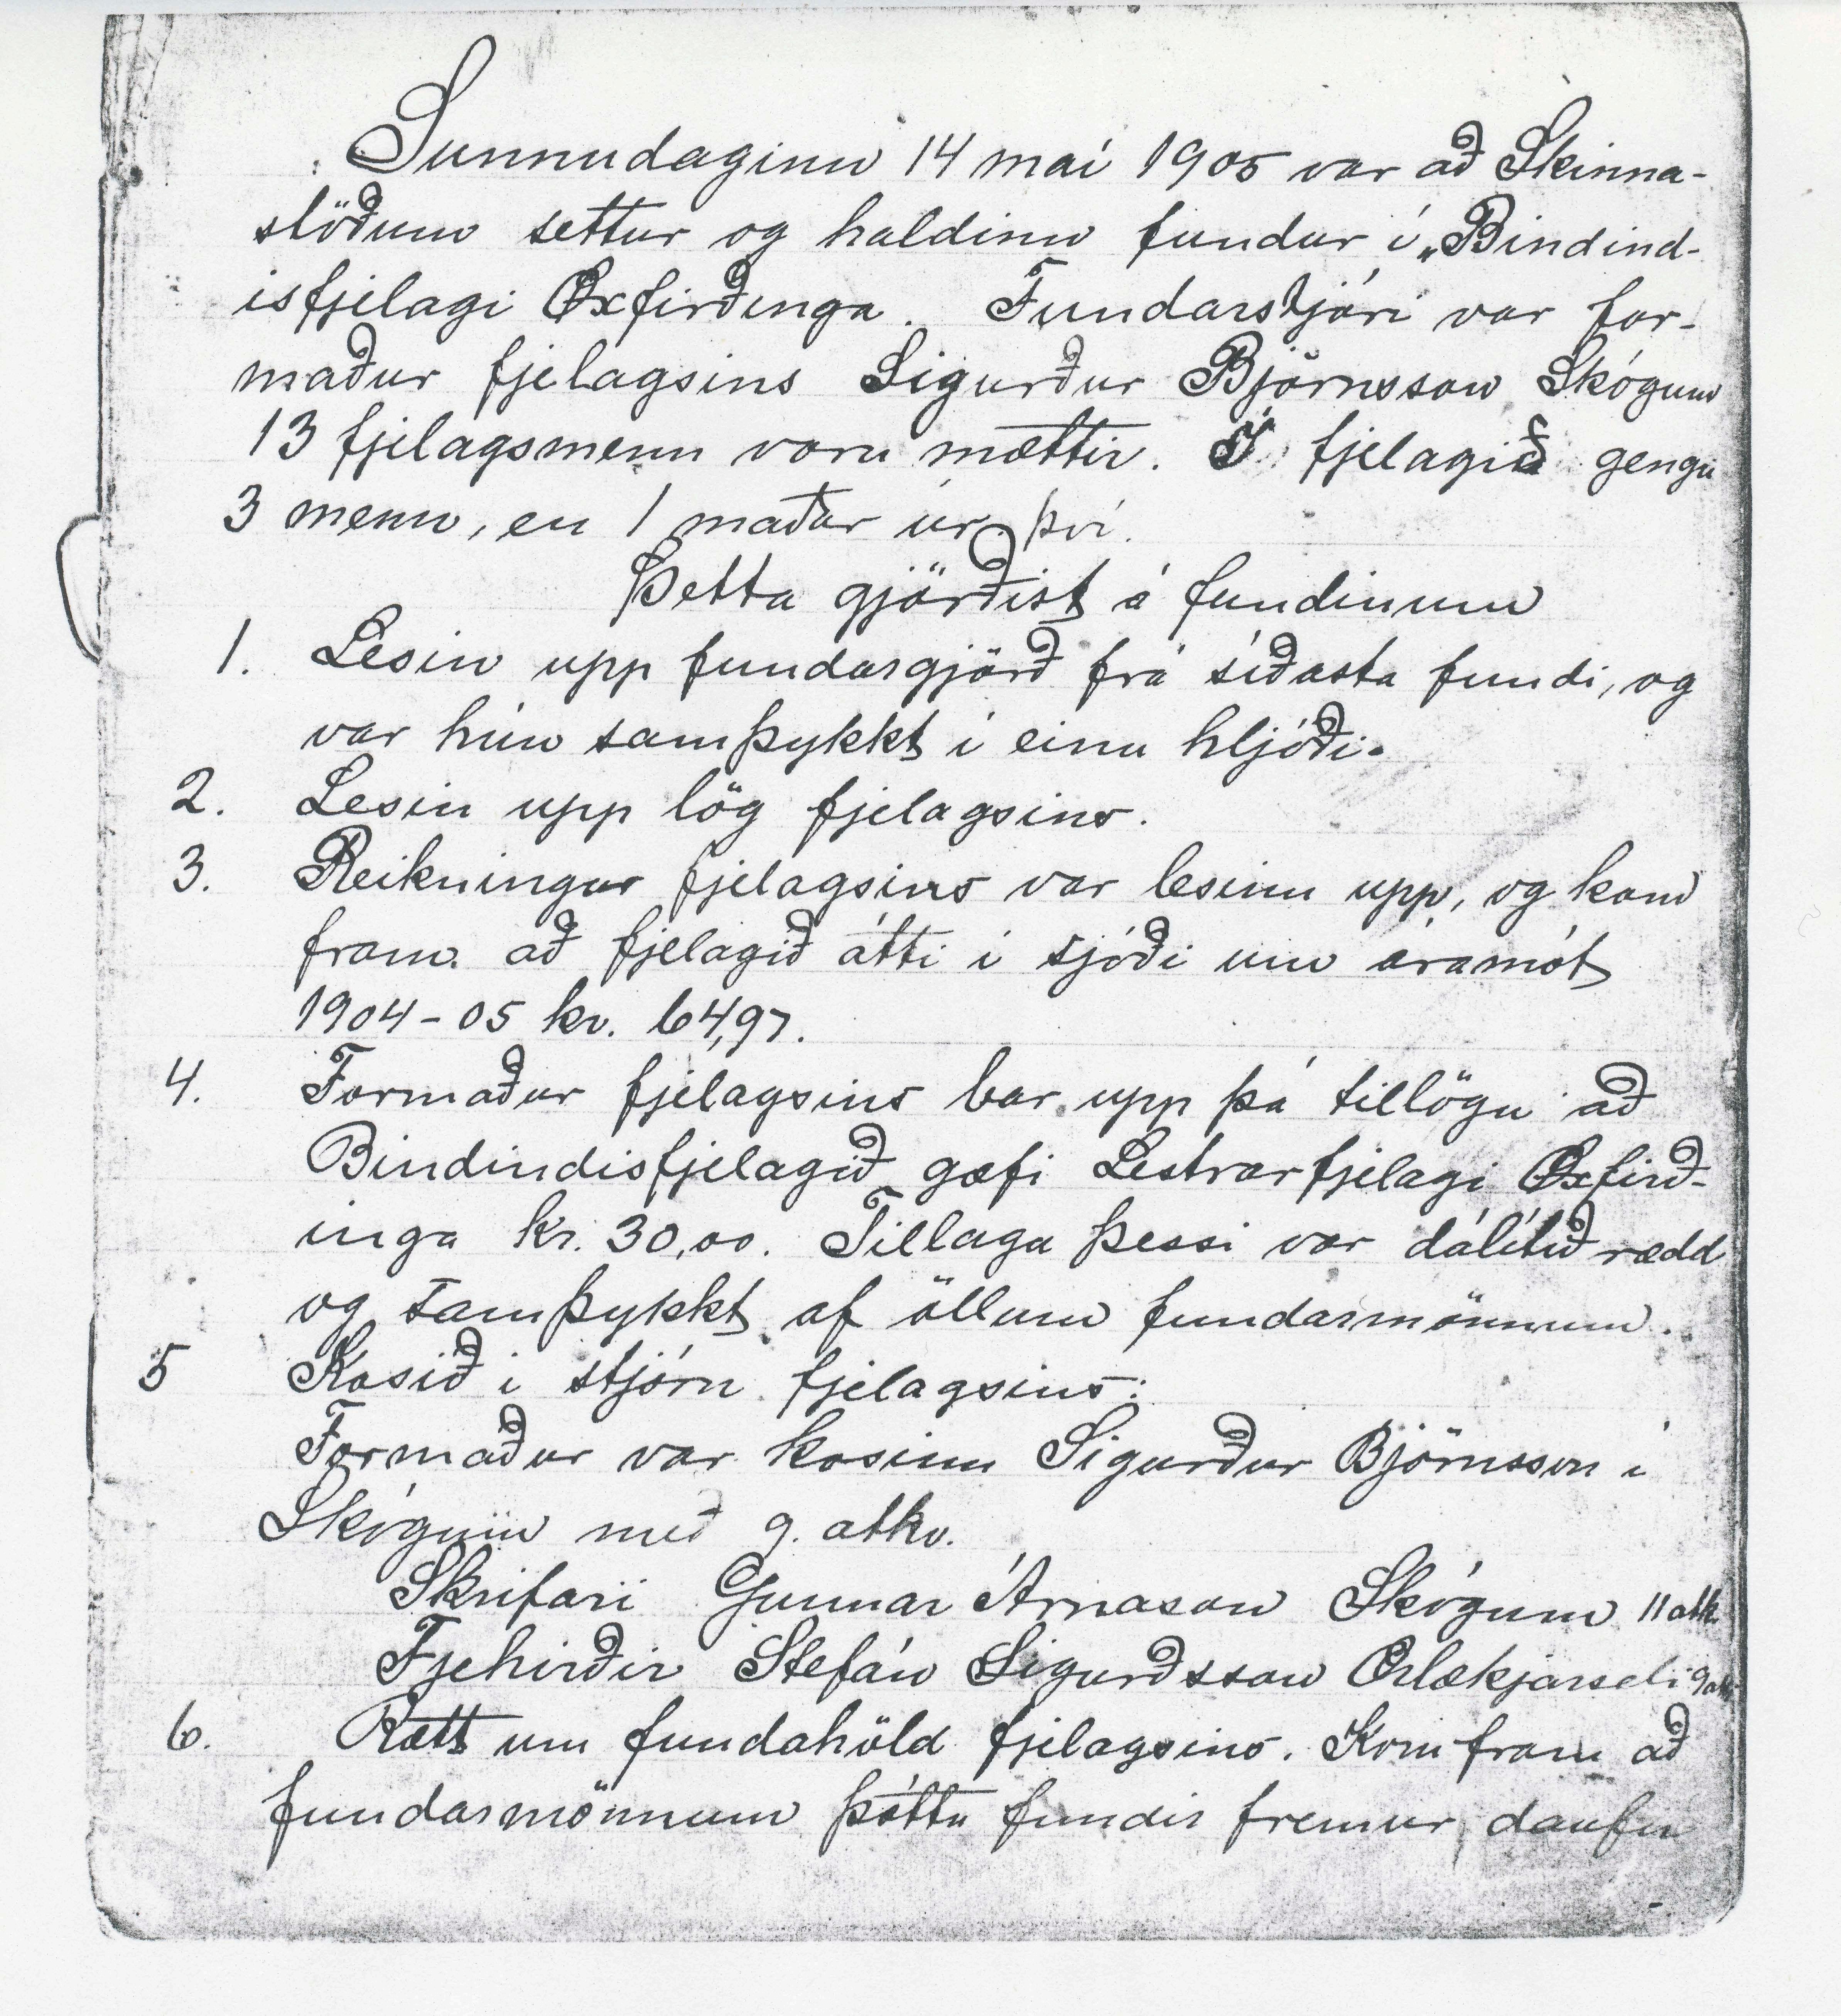 Sunnudaginn 14 maí 1905 var að Skinna-
stöðum settur og haldinn fundur í „Bindind-
isfjelagi Öxfirðinga. Fundarstjóri var for-
maður fjelagsins Sigurður Björnsson Skógum
13 fjelagsmenn voru mættir. Í fjelagið gengu
3 menn, en 1 maður úr því.
Þetta gjörðist á fundinum
1. Lesin upp fundargjörð frá síðasta fundi, og
var hún samþykkt í einu hljóði.
2. Lesin upp lög fjelagsins.
3. Reikningur fjelagsins var lesinn upp, og kom
fram að fjelagið átti í sjóði um áramót
1904-05 kr. 64,97.
4. Formaður fjelagsins bar upp þá tillögu að
Bindindisfjelagið gæfi Lestrarfjelagi Öxfirð-
inga kr. 30,00. Tillaga þessi var dálítið rædd
og samþykkt af öllum fundarmönnum.
5 Kosið í stjórn fjelagsins:
Formaður var kosinn Sigurður Björnsson í
Skógum með 9. atkv.
Skrifari Gunnar Árnason Skógum 11 atk
Fjehirðir Stefán Sigurðsson Ærlækjarseli 9 atk
6. Rætt um fundahöld fjelagsins. Kom fram að
fundarmönnum þóttu fundir fremur daufir